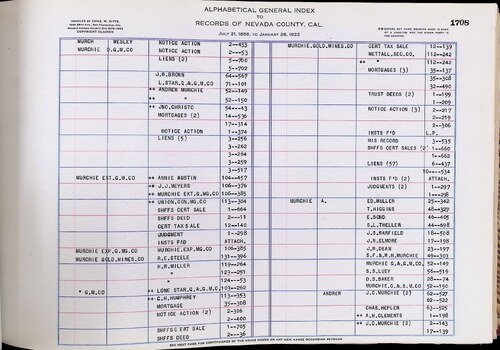 ALPHABETICAL GENERAL INDEX
TO
RECORDS OF NEVADA COUNTY, CAL.
JULY 21, 1856, TO JANUARY 26, 1922
1708
COPYRIGHT CLAIMED
MURCH WESLEY NOTICE ACTION 2--453
MURCHIE D.G,M,CO NOTICE ACTION 2---53
LIENS (2) 5--700
5--702
J,H,BROWN 64--567
L,STAR,Q,A,G,M,CO 71--101
++ ANDREW MURCHIE 52--149
++ " 52--150
++ JNO,CHRISTO 54---43
MORTGAGES (2) 14--536
17--314
NOTICE ACTION 1--374
LIENS (5) 3--256
3--262
3--294
3--259
3--517
MURCHIE EXT,G,M,CO ++ ANNIE AUSTIN 104--457
++ J,J,MEYERS 106--376
++ MURCHIE EXT,G,MG,CO 106--385
++ UNION,CON,MG,CO 113--304
SHFFS CERT SALE 1--664
SHFFS DEED 2---11
CERT TAX SALE 12--140
JUDGMENT 1--298
INSTS F#D ATTACH.
MURCHIE EXP,G,MG,CO MURCHIE,EXP,MG,CO 106--385
MURCHIE GOLD,WINES,CO R,E,STEELE 131--396
H,R,MILLER 119--264
" 123--251
" 124---53
" G,M,CO ++ LONE STAR,Q,A,G,M,C 103--262
++ C,H,HUMPHREY 113--353
MORTGAGE 35--308
NOTICE ACTION (2) 2--306
2--400
SHFFS CERT SALE 1--705
SHFFS DEED 2---36
MURCHIE,GOLD,WINES,CO CERT TAX SALE 12--139
METTALL,SEC,CO, 112--242
++ " 112--242
MORTGAGES (3) 35--137
35--308
32--490
TRUST DEEDS (2) 1--199
1--209
NOTICE ACTION (3) 2--217
2--219
2--306
INSTS F#D L.P.
HIS RECORD 3--535
SHFFS CERT SALES (2 1--660
1--662
LIENS (57) 6--437
10----534
INSTS F#D (2) ATTACH.
JUDGMENTS (2) 1--297
1--298
MURCHIE A, ED,MULLER 25--342
T,HIGGINS 48--327
E,BOND 40--405
S,L,THELLER 44--698
J,S,WARFIELD 18--508
J,N,ELMORE 17--198
J,H,DEAN 23--197
S,F,&,W,H,MURCHIE 49--303
MURCHIE G,A,G,M,CO 52--151
S,S,LUEY 56--519
D,S,BAKER 28---74
MURCHIE,G,M,CO 52--150
ANDREW J,C,MURCHIE (2) 62--527
62--522
CHAS,HEFLER 63--525
++ A,H,CLEMENTS 1--198
++ J,C,MURCHIE (2) 2--143
17--139